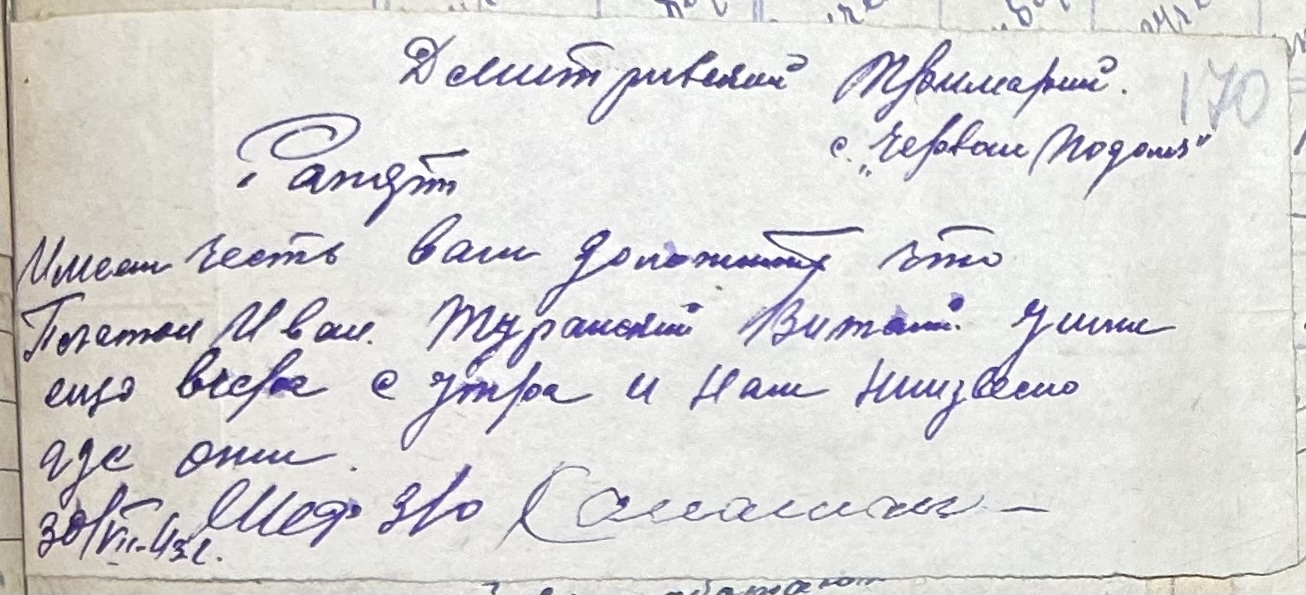 Дмитриевский Примарий.
170
с. "Червон Подоля"
Рапорт
Имею честь вам доложить что
Платон Иван. Туранский Витали. ушли
ещо вчера с утра и нам ниизвесно
где они.
30/VII-43 г. Шеф з/о